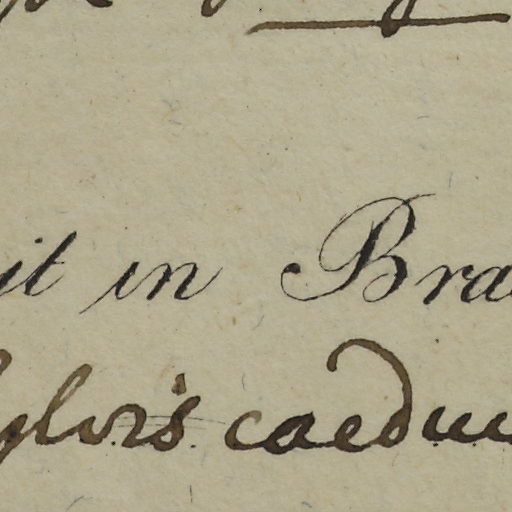 it in Bra
ylvis caedu